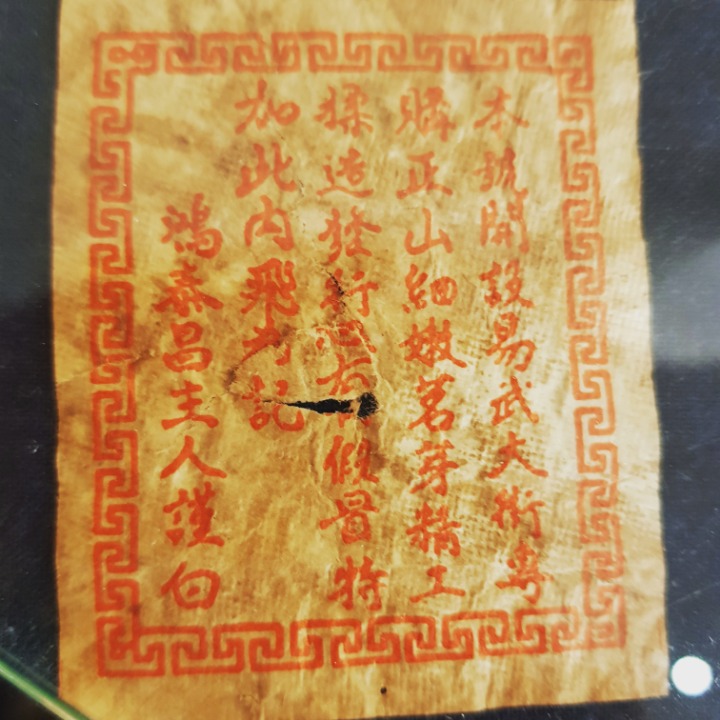 本號開設易武大街專
購正山細嫩茗芽精工
揉造發行有假冒特
加此内飛為記
鴻泰昌主人謹白